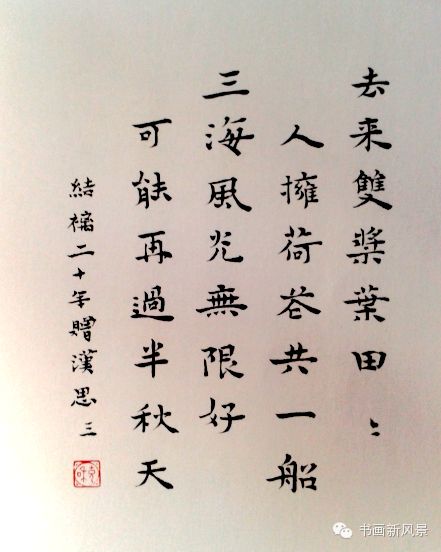 去来雙槳葉田〻
人擁荷花共一船
三海風光無限好
可能再過半秋天
結褵二十年贈漢思 三
书画新风景